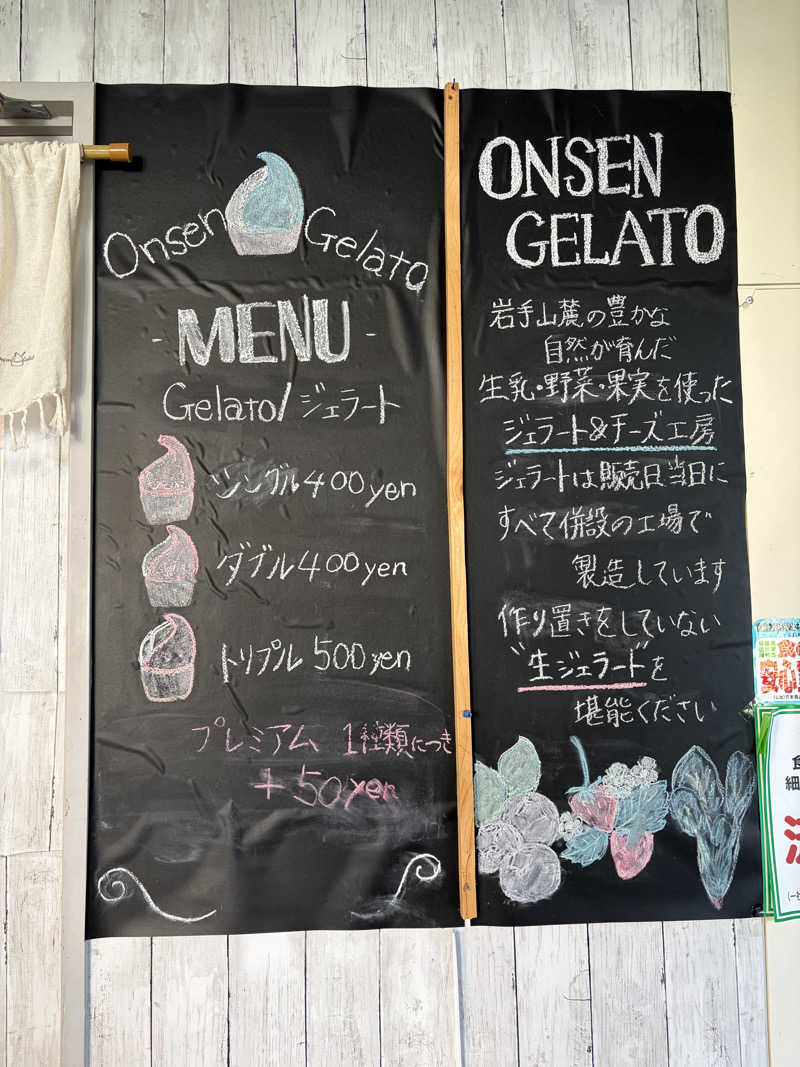 Onsen Gelato
- MENU -
Gelato/ジェラート
シングル 400yen
ダブル 400yen
トリプル 500yen
プレミアム 1種類につき
+50yen
ONSEN
GELATO
岩手山麓の豊かな
自然が育んだ
生乳・野菜・果実を使った
ジェラート&チーズ工房
ジェラートは販売日当日に
すべて併設の工場で
製造しています
作り置きをしていない
"生ジェラード"を
堪能ください